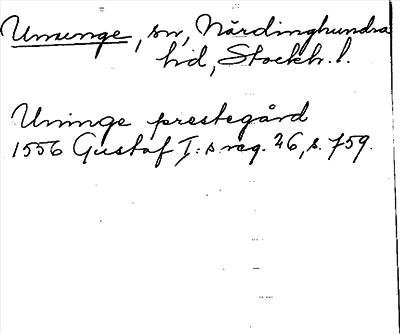 Ununge, sn, Närdinghundra
hd, Stockh. l.
Uninge prestegård
1556 Gustaf I:s reg. 26, s. 759.